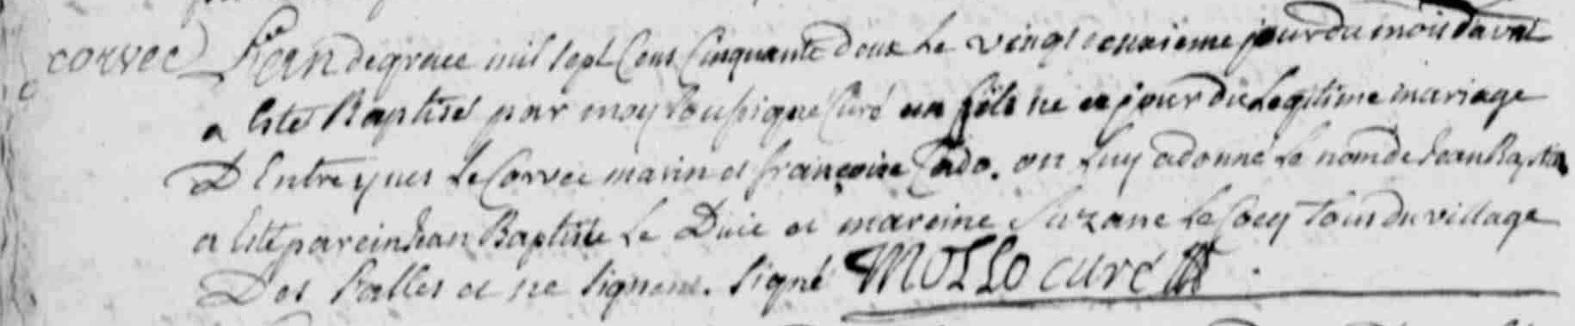 corvec L'an de grace mil sept Cens Cinquante deux le vingt deuxieme jour du mois davril
a Esté Baptisé par moy soussigné Curé un fils né ce jour du Legitime mariage
D'Entre yves Le Corvec marin et françoise Cado. on Luy a donné Le nom de Jean Baptiste
a Esté parein Jean Baptiste Le Duic et mareine Suzane Le Cocq Tous du village
Des Salles et ne signent. signé MOLLO curé